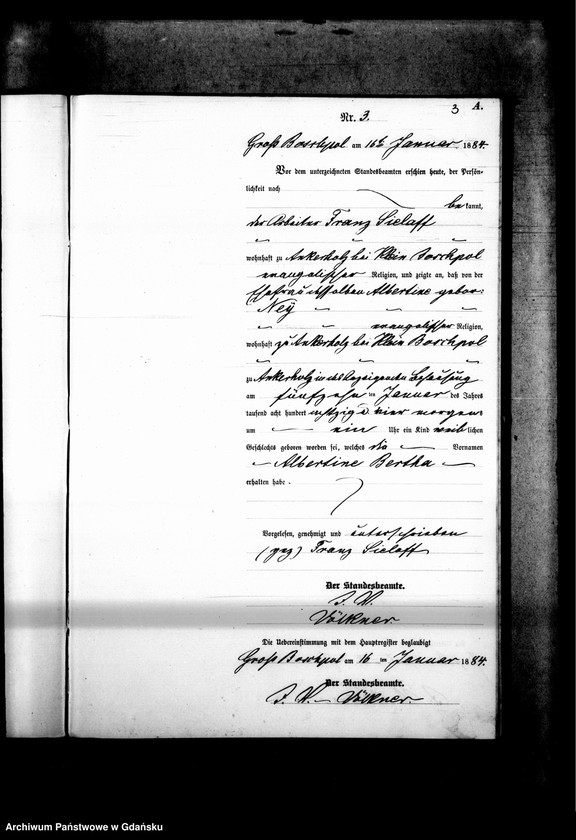 3 A.
Nr. 3.
Groß Boschpol am 16ten Januar 1884.
Vor dem unterzeichneten Standesbeamten erschien heute, der Persön-
lichkeit nach
bekannt,
der Arbeiter Franz Sielaff
wohnhaft zu Ankerholz bei Klein Boschpol
evangelischer Religion, und zeigte an, daß von der
Ehefrau desselben Albertine gebor:
Ney
evangelischer Religion,
wohnhaft zu Ankerholz bei Klein Boschpol
zu Ankerholz in des Anzeigenden Behausung
am fünfzehn ten Januar des Jahres
tausend acht hundert achtzig u. vier morgens
um ein Uhr ein Kind weiblichen
Geschlechts geboren worden sei, welches die Vornamen
Albertine Bertha
erhalten habe.
Vorgelesen, genehmigt und unterschrieben
(gez) Franz Sielaff
Der Standesbeamte.
I. V.
Völkner
Die Uebereinstimmung mit dem Hauptregister beglaubigt
Groß Boschpol am 16 ten Januar 1884.
Der Standesbeamte.
I. V. Völkner.
Archiwum Państwowe w Gdańsku